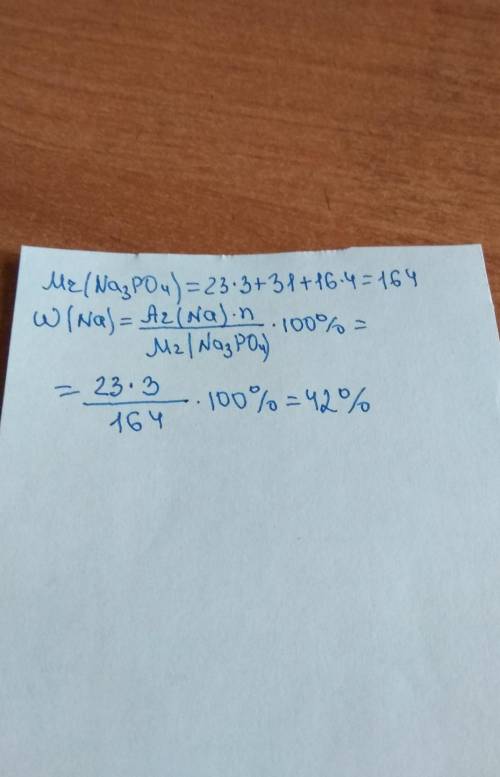 Mr(Na₃PO₄)=23·3+31+16·4=164
W(Na)=Ar(Na)·n/Mr(Na₃PO₄)·100%=
=23·3/164·100%=42%